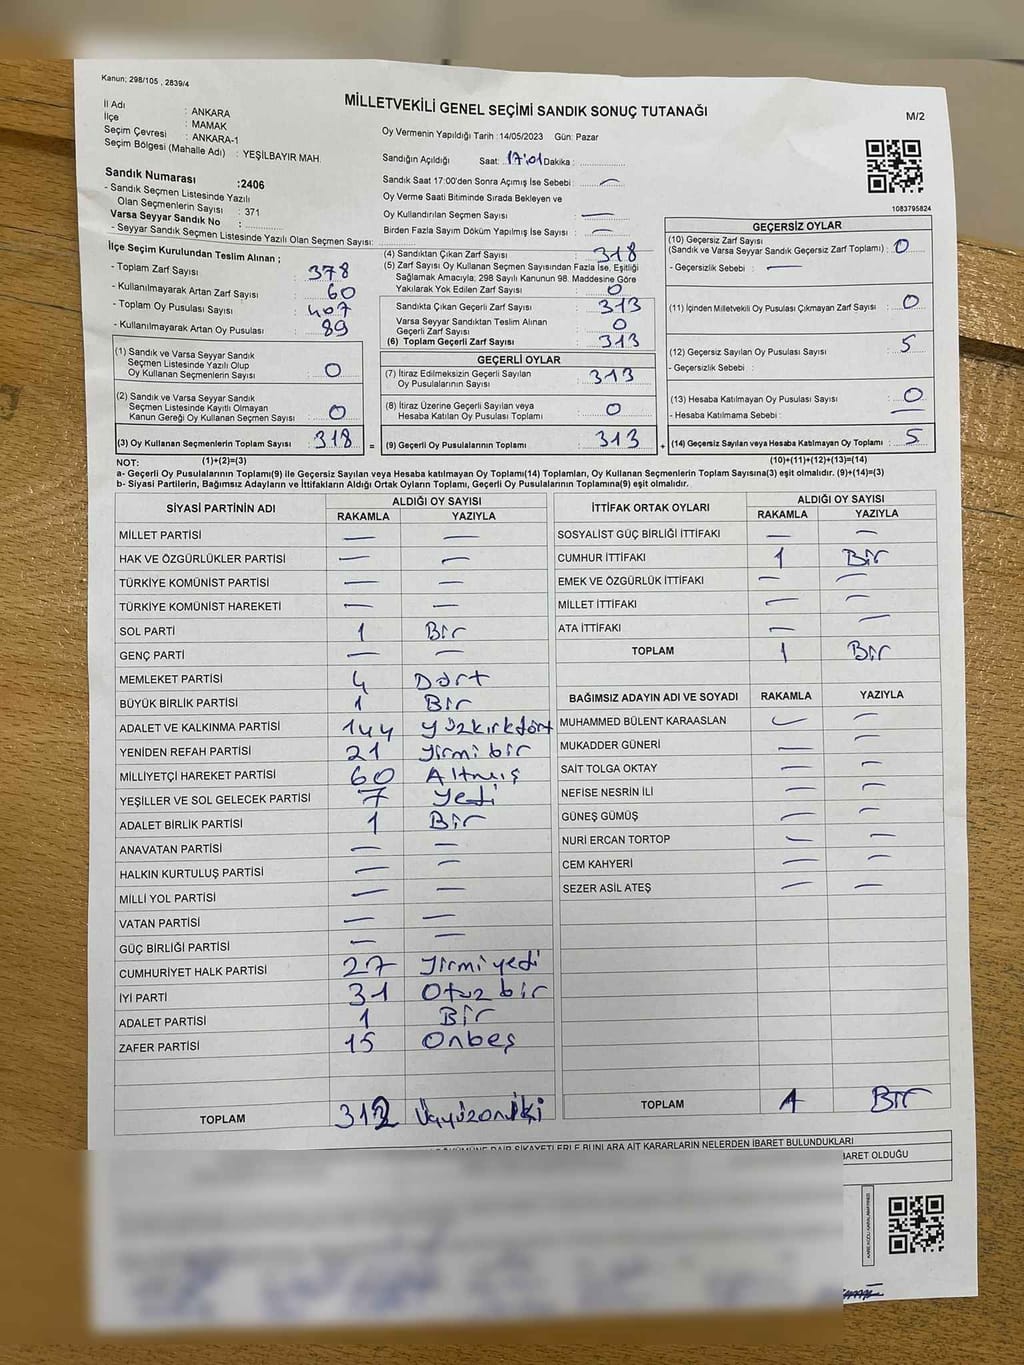 Kanun; 298/105 , 2839/4
MİLLETVEKİLİ GENEL SEÇİMİ SANDIK SONUÇ TUTANAĞI
M/2
İl Adı : ANKARA
İlçe : MAMAK
Seçim Çevresi : ANKARA-1
Seçim Bölgesi (Mahalle Adı) : YEŞİLBAYIR MAH.
Oy Vermenin Yapıldığı Tarih :14/05/2023 Gün: Pazar
Sandığın Açıldığı Saat: 17:01 Dakika :
Sandık Saat 17:00'den Sonra Açımış İse Sebebi : —
Oy Verme Saati Bitiminde Sırada Bekleyen ve
Oy Kullandırılan Seçmen Sayısı : —
Birden Fazla Sayım Döküm Yapılmış İse Sayısı : —
1083795824
Sandık Numarası :2406
- Sandık Seçmen Listesinde Yazılı
Olan Seçmenlerin Sayısı : 371
Varsa Seyyar Sandık No :
- Seyyar Sandık Seçmen Listesinde Yazılı Olan Seçmen Sayısı:
İlçe Seçim Kurulundan Teslim Alınan ;
- Toplam Zarf Sayısı : 378
- Kullanılmayarak Artan Zarf Sayısı : 60
- Toplam Oy Pusulası Sayısı : 407
- Kullanılmayarak Artan Oy Pusulası : 89
(1) Sandık ve Varsa Seyyar Sandık
Seçmen Listesinde Yazılı Olup
Oy Kullanan Seçmenlerin Sayısı : 0
(2) Sandık ve Varsa Seyyar Sandık
Seçmen Listesinde Kayıtlı Olmayan
Kanun Gereği Oy Kullanan Seçmen Sayısı : 0
(3) Oy Kullanan Seçmenlerin Toplam Sayısı : 318
(1)+(2)=(3)
(4) Sandıktan Çıkan Zarf Sayısı : 318
(5) Zarf Sayısı Oy Kullanan Seçmen Sayısından Fazla İse, Eşitliği
Sağlamak Amacıyla; 298 Sayılı Kanunun 98. Maddesine Göre
Yakılarak Yok Edilen Zarf Sayısı : 0
Sandıkta Çıkan Geçerli Zarf Sayısı : 313
Varsa Seyyar Sandıktan Teslim Alınan
Geçerli Zarf Sayısı : 0
(6) Toplam Geçerli Zarf Sayısı : 313
GEÇERLİ OYLAR
(7) İtiraz Edilmeksizin Geçerli Sayılan
Oy Pusulalarının Sayısı : 313
(8) İtiraz Üzerine Geçerli Sayılan veya
Hesaba Katılan Oy Pusulası Toplamı : 0
= (9) Geçerli Oy Pusulalarının Toplamı : 313 +
GEÇERSİZ OYLAR
(10) Geçersiz Zarf Sayısı
(Sandık ve Varsa Seyyar Sandık Geçersiz Zarf Toplamı) : 0
- Geçersizlik Sebebi : —
(11) İçinden Milletvekili Oy Pusulası Çıkmayan Zarf Sayısı : 0
(12) Geçersiz Sayılan Oy Pusulası Sayısı : 5
- Geçersizlik Sebebi :
(13) Hesaba Katılmayan Oy Pusulası Sayısı : 0
- Hesaba Katılmama Sebebi : —
(14) Geçersiz Sayılan veya Hesaba Katılmayan Oy Toplamı : 5
(10)+(11)+(12)+(13)=(14)
NOT:
a- Geçerli Oy Pusulalarının Toplamı(9) ile Geçersiz Sayılan veya Hesaba katılmayan Oy Toplamı(14) Toplamları, Oy Kullanan Seçmenlerin Toplam Sayısına(3) eşit olmalıdır. (9)+(14)=(3)
b- Siyasi Partilerin, Bağımsız Adayların ve İttifakların Aldığı Ortak Oyların Toplamı, Geçerli Oy Pusulalarının Toplamına(9) eşit olmalıdır.
SİYASİ PARTİNİN ADI ALDIĞI OY SAYISI
RAKAMLA YAZIYLA
MİLLET PARTİSİ — —
HAK VE ÖZGÜRLÜKLER PARTİSİ — —
TÜRKİYE KOMÜNİST PARTİSİ — —
TÜRKİYE KOMÜNİST HAREKETİ — —
SOL PARTİ 1 Bir
GENÇ PARTİ — —
MEMLEKET PARTİSİ 4 Dört
BÜYÜK BİRLİK PARTİSİ 1 Bir
ADALET VE KALKINMA PARTİSİ 144 Yüzkırkdört
YENİDEN REFAH PARTİSİ 21 Yirmi bir
MİLLİYETÇİ HAREKET PARTİSİ 60 Altmış
YEŞİLLER VE SOL GELECEK PARTİSİ 7 Yedi
ADALET BİRLİK PARTİSİ 1 Bir
ANAVATAN PARTİSİ — —
HALKIN KURTULUŞ PARTİSİ — —
MİLLİ YOL PARTİSİ — —
VATAN PARTİSİ — —
GÜÇ BİRLİĞİ PARTİSİ — —
CUMHURİYET HALK PARTİSİ 27 Yirmi yedi
İYİ PARTİ 31 Otuz bir
ADALET PARTİSİ 1 Bir
ZAFER PARTİSİ 15 Onbeş
TOPLAM 312 Üçyüzoniki
İTTİFAK ORTAK OYLARI ALDIĞI OY SAYISI
RAKAMLA YAZIYLA
SOSYALİST GÜÇ BİRLİĞİ İTTİFAKI — —
CUMHUR İTTİFAKI 1 Bir
EMEK VE ÖZGÜRLÜK İTTİFAKI — —
MİLLET İTTİFAKI — —
ATA İTTİFAKI — —
TOPLAM 1 Bir
BAĞIMSIZ ADAYIN ADI VE SOYADI RAKAMLA YAZIYLA
MUHAMMED BÜLENT KARAASLAN — —
MUKADDER GÜNERİ — —
SAİT TOLGA OKTAY — —
NEFİSE NESRİN İLİ — —
GÜNEŞ GÜMÜŞ — —
NURİ ERCAN TORTOP — —
CEM KAHYERİ — —
SEZER ASİL ATEŞ — —
TOPLAM 1 Bir
DAİR ŞİKAYETLERLE BUNLARA AİT KARARLARIN NELERDEN İBARET BULUNDUKLARI
İBARET OLDUĞU